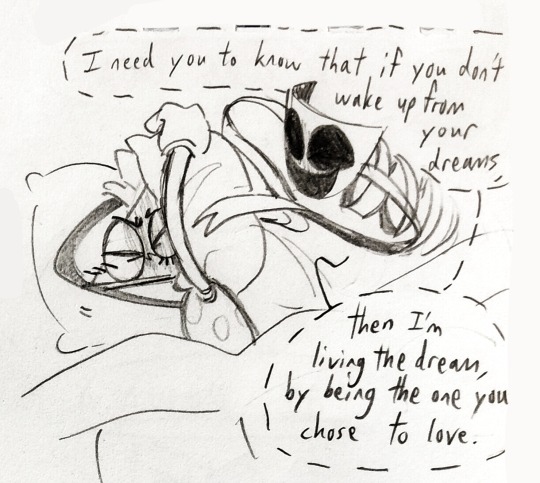 I need you to know that if you don't
wake up from
your
dreams,
then I'm
living the dream,
by being the one you
chose to love.